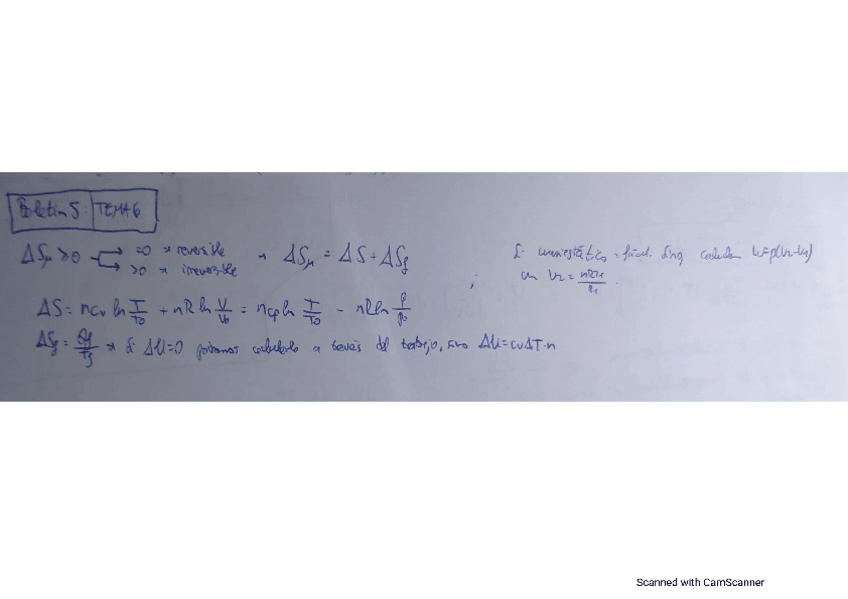 Boletín 5: TEMA 6
ΔSμ ≥ 0 → =0 → reversible
→ >0 → irreversible → ΔSμ = ΔS + ΔSf
Si cuasiestático = calcular W=p(V2-V1)
V2 =
ΔS = ncv ln T/T0 + nR ln V/V0 = ncp ln T/T0 - nR ln P/P0
ΔSf = Qf/Tf → Si ΔU=0 podemos calcularlo a través del trabajo, sino ΔU=cvΔT·n
Scanned with CamScanner